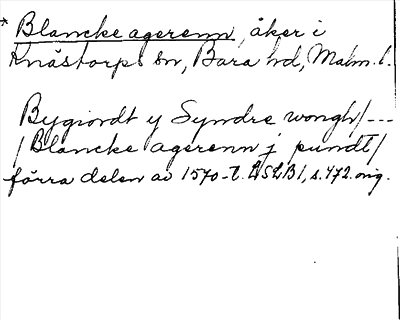 * Blancke agerenn, åker i
Knästorps sn, Bara hd, Malm. l.
Bygiordt y Syndre wongh/---
/Blancke agerenn j pundt/
förra delen av 1570-t. ÄSLB1, s. 472. orig.